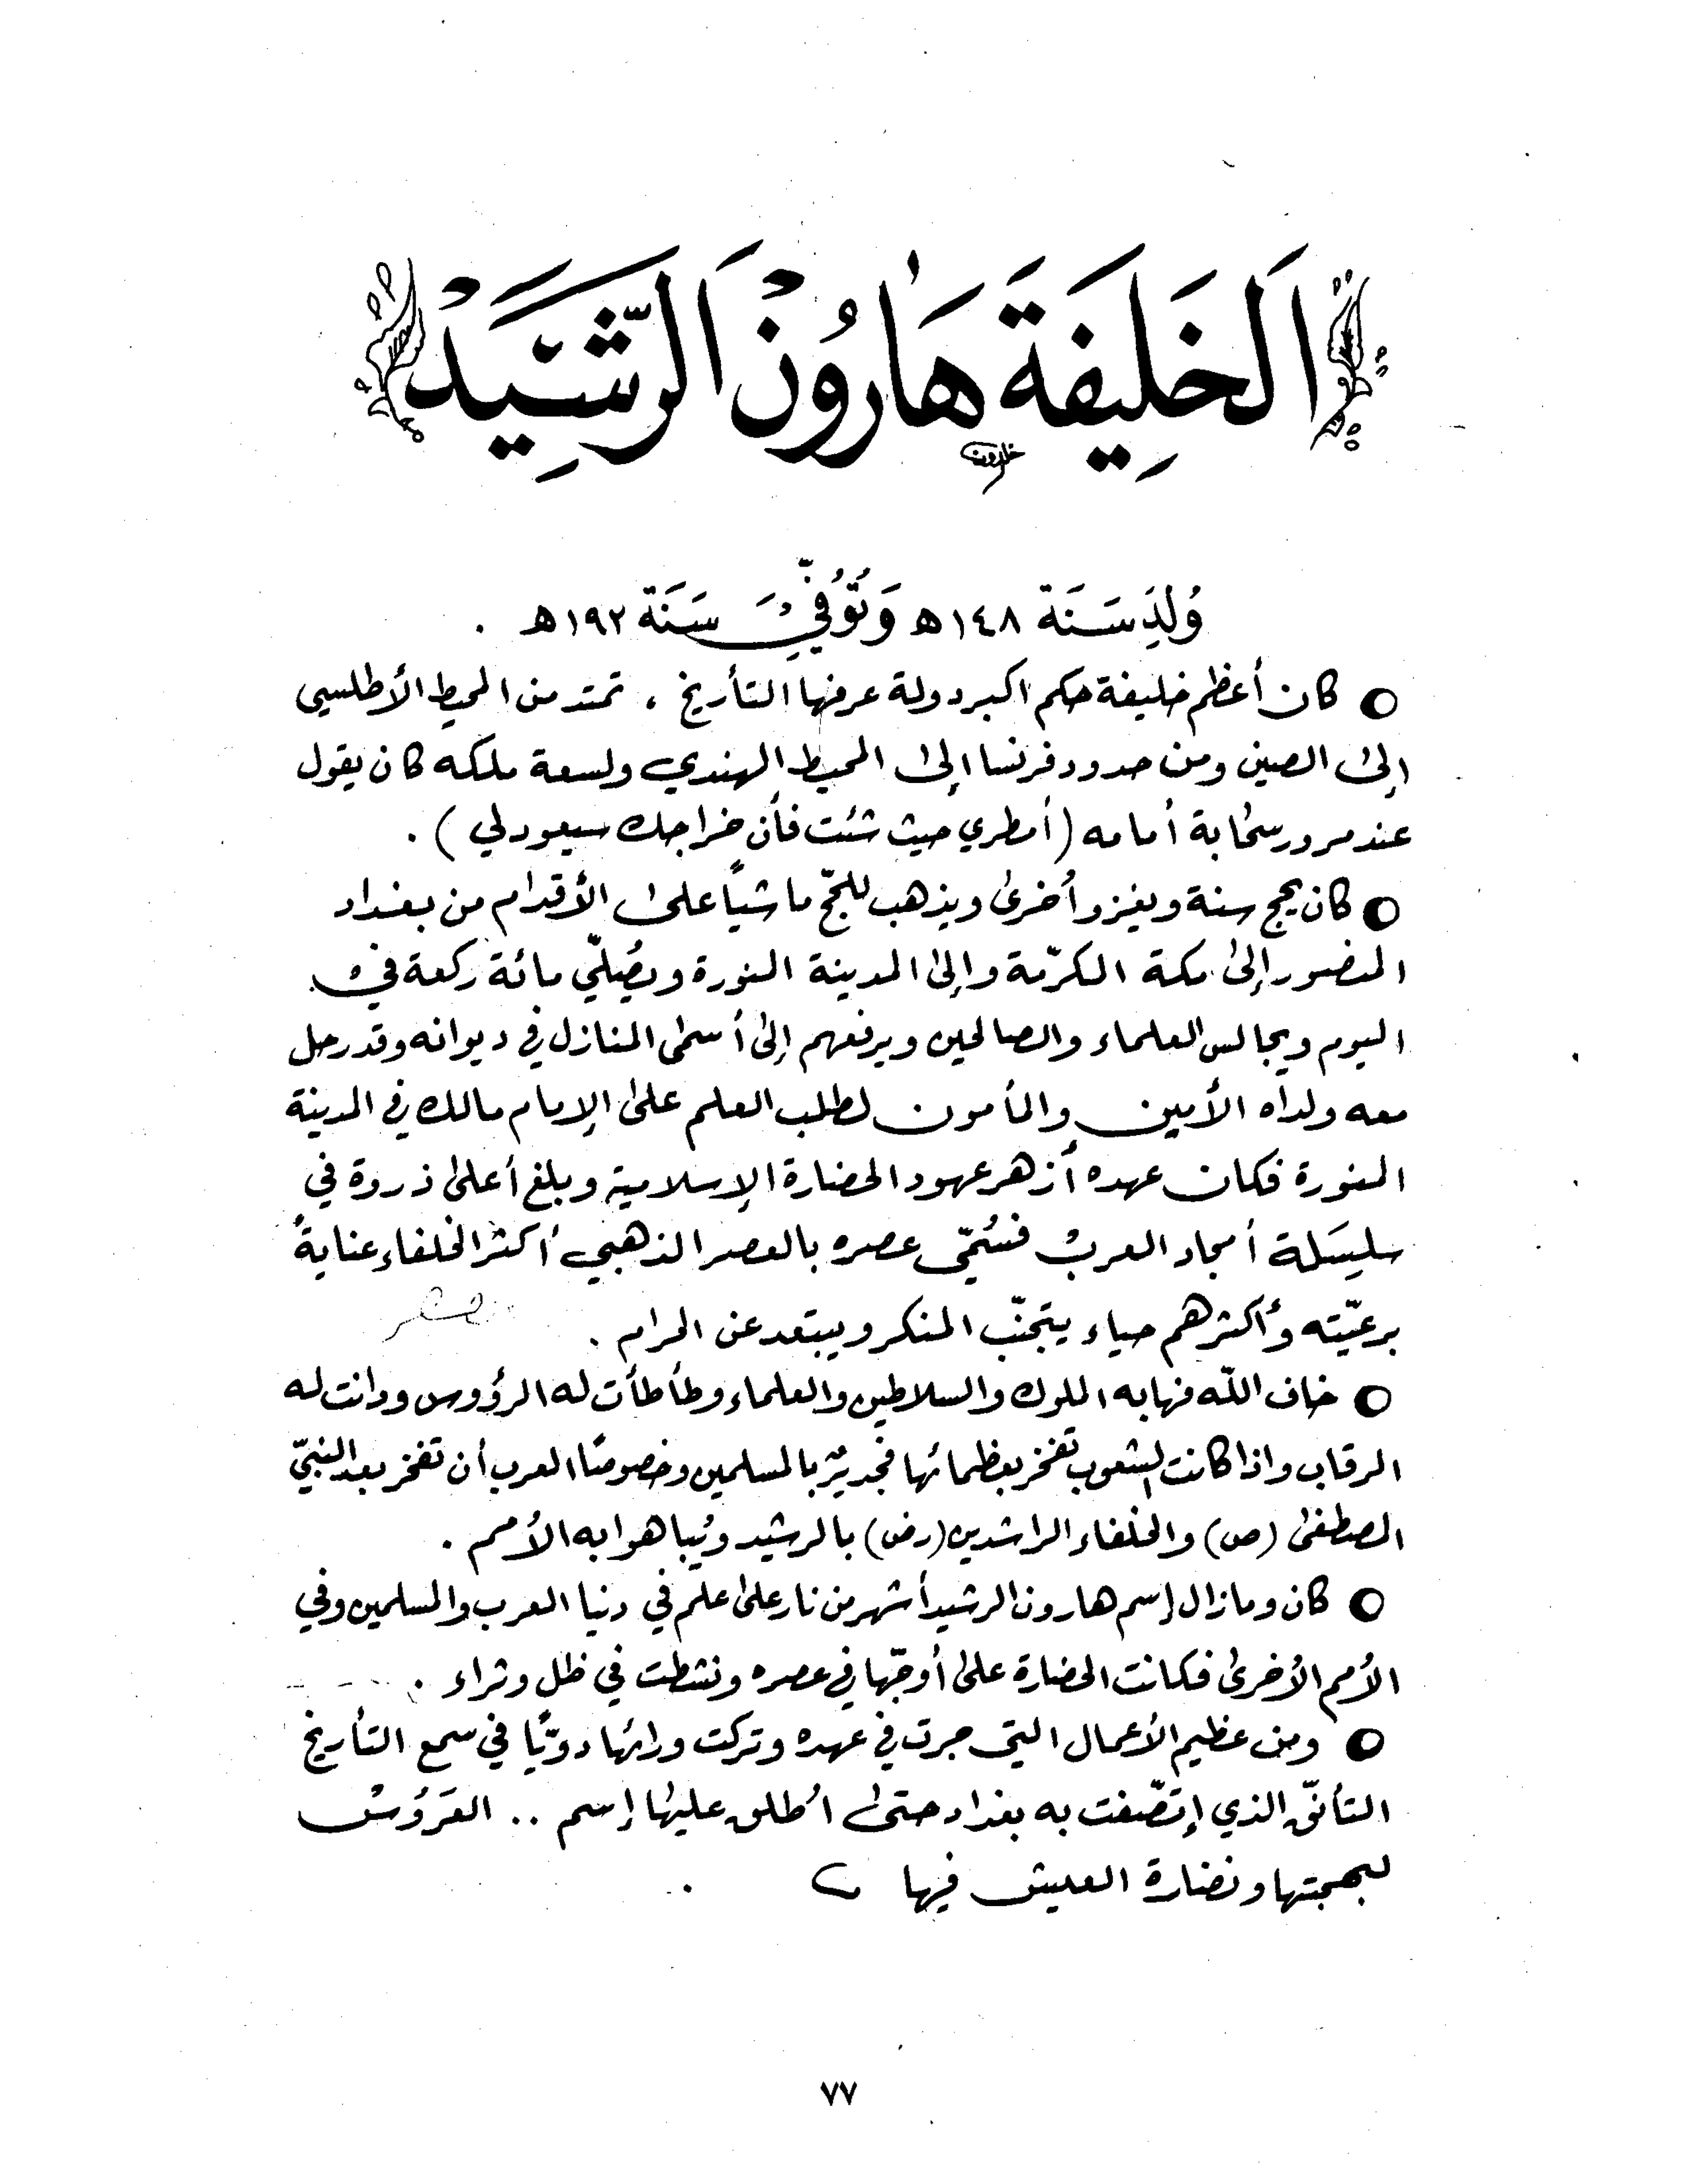 اَلخَلِيفَة هَارُون اَلرَّشَّيِّدْ
خلدون
وُلِدَ سَنَة ١٤٨هـ وَتُوُفِّيَ سَنَة ١٩٢هـ .
○ كان أعظم خليفة حكم اكبر دولة عرفها التأريخ ، تمتد من المحيط الأطلسي
إلى الصين ومن حدود فرنسا إلى المحيط الهندي ولسعة ملكه كان يقول
عند مرور سحابة أمامه (أمطري حيث شئت فأن خراجك سيعود لي) .
○ كان يحج سنة ويغزو أخرى ويذهب للحجّ ماشياً على الأقدام من بغداد
المنصور إلى مكة المكرّمة وإلى المدينة المنورة ويُصَلّي مائة ركعة في
اليوم ويجالس العلماء والصالحين ويرفعهم إلى أسمى المنازل في ديوانه وقد رحل
معه ولداه الأمين والمأمون لطلب العلم على الإمام مالك في المدينة
المنورة فكان عهده أزهر عهود الحضارة الإسلامية وبلغ أعلى ذروة في
سلسَلة أمجاد العرب فسُمّي عصره بالعصر الذهبي أكثر الخلفاء عنايةً
برعيّته وأكثرهم حياء يتجنّب المنكر ويبتعد عن الحرام .
○ خاف اللّه فهابه الملوك والسلاطين والعلماء وطأطأت له الرؤوس ودانت له
الرقاب واذا كانت الشعوب تفخر بعظمائها فجديرٌ بالمسلمين وخصوصًا العرب أن تفخر بعد النبيّ
المصطفى (ص) والخلفاء الراشدين (رض) بالرشيد ويُباهوا به الأمم .
○ كان وما زال إسم هارون الرشيد أشهر من نار على علم في دنيا العرب والمسلمين وفي
الأمم الأخرى فكانت الحضارة على أوجّها في عصره ونشطت في ظل وثراء .
○ ومن عظيم الأعمال التي جرت في عهده وتركت ورائها دويًّا في سمع التأريخ
التأنّق الذي إتصّفت به بغداد حتى أُطلق عليها إسم .. العَرُوسْ
لبهجتها ونضارة العيش فيها .
٧٧